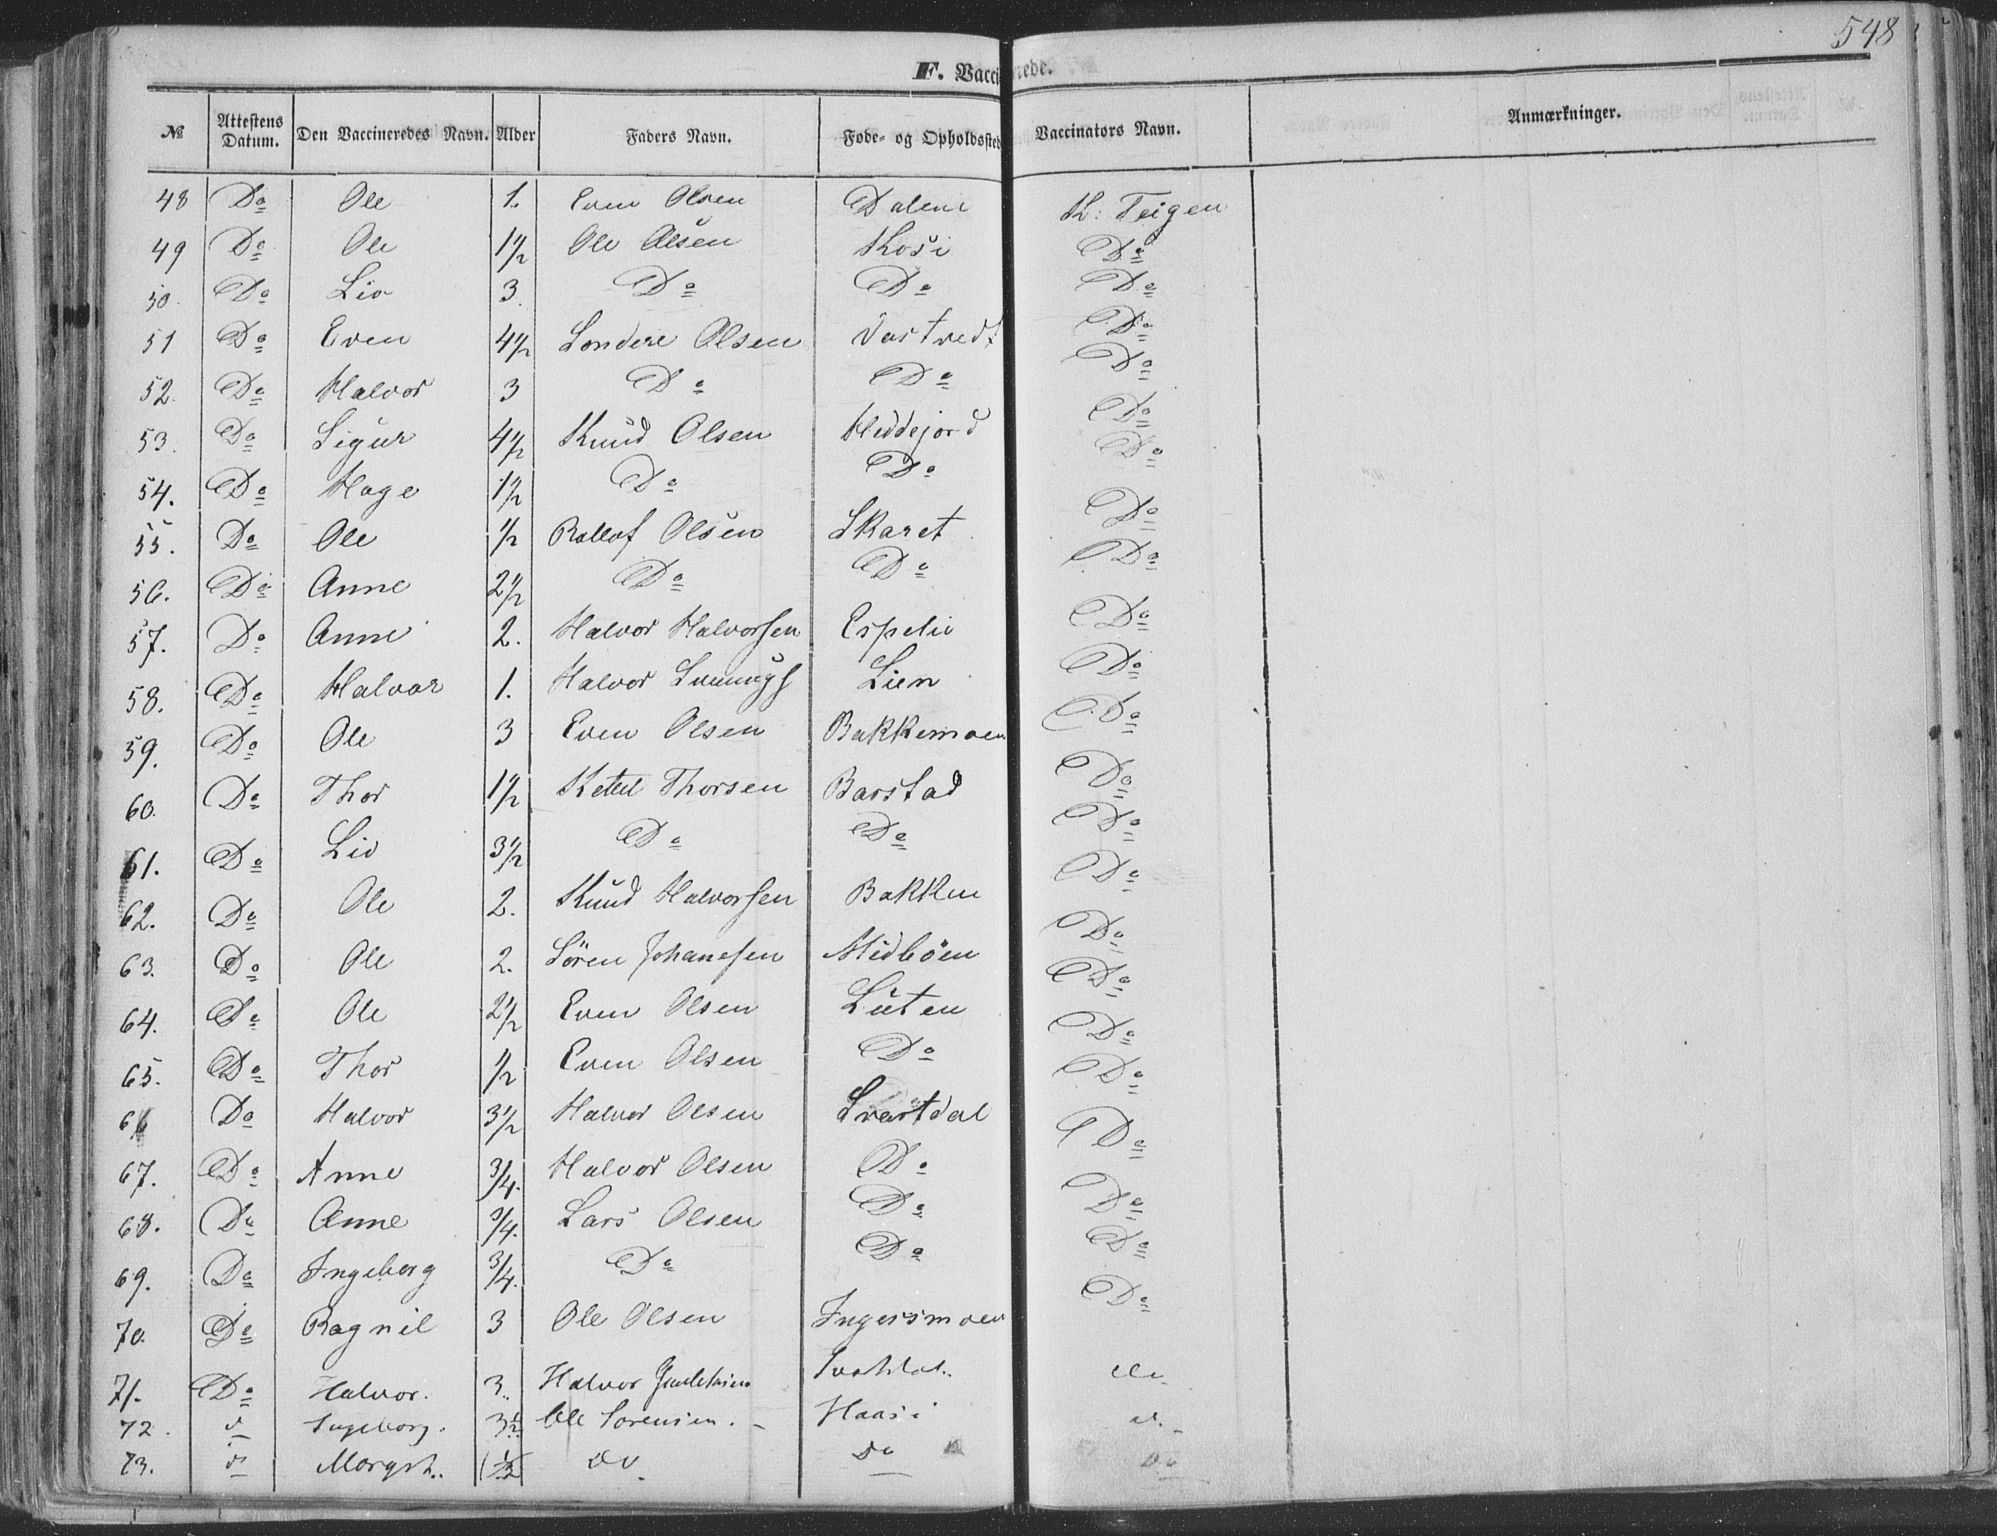 548
F. Vaccinerede.
№ Attestens Datum. Den Vaccineredes Navn. Alder Faders Navn. Føde- og Opholdssted Vaccinators Navn. Anmærkninger.
48 Do Ole 1. Even Olsen Dalene K: Teigen
49 Do Ole 1½ Ole Olsen Kosi Do
50. Do Liv 3. Do Do Do
51 Do Even 4½ Sondere Olsen Vastvedt Do
52. Do Halvor 3 Do Do Do
53. Do Sigur 4½ Knud Olsen Middejord Do
54. Do Hage 1½ Do Do Do
55. Do Ole ½ Rollof Olsen Skaret Do
56. Do Anne 2½ Do Do Do
57. Do Anne 2. Halvor Halvorsen Espelie Do
58. Do Halvor 1. Halvor Lien Do
59. Do Ole 3 Even Olsen Bakkemoen Do
60. Do Thor 1½ Ketel Thorsen Barstad Do
61. Do Liv 3½ Do Do Do
62. Do Ole 2. Knud Halvorsen Bakken Do
63. Do Ole 2. Søren Johanesen Midbøen Do
64. Do Ole 2½ Even Olsen Luten Do
65. Do Thor ½ Even Olsen Do Do
66 Do Halvor 3½ Halvor Olsen Svartdal Do
67. Do Anne 3/4. Halvor Olsen Do Do
68. Do Anne 3/4. Lars Olsen Do Do
69. Do Ingeborg 3/4. Do Do Do
70. Do Ragnil 3 Ole Olsen Ingersmoen Do
71. Do Halvor. 3. Halvor do
72. d Ingeborg. 3½ Ole Sorensen. Haasi d.
73. d 1½ Do Do Do